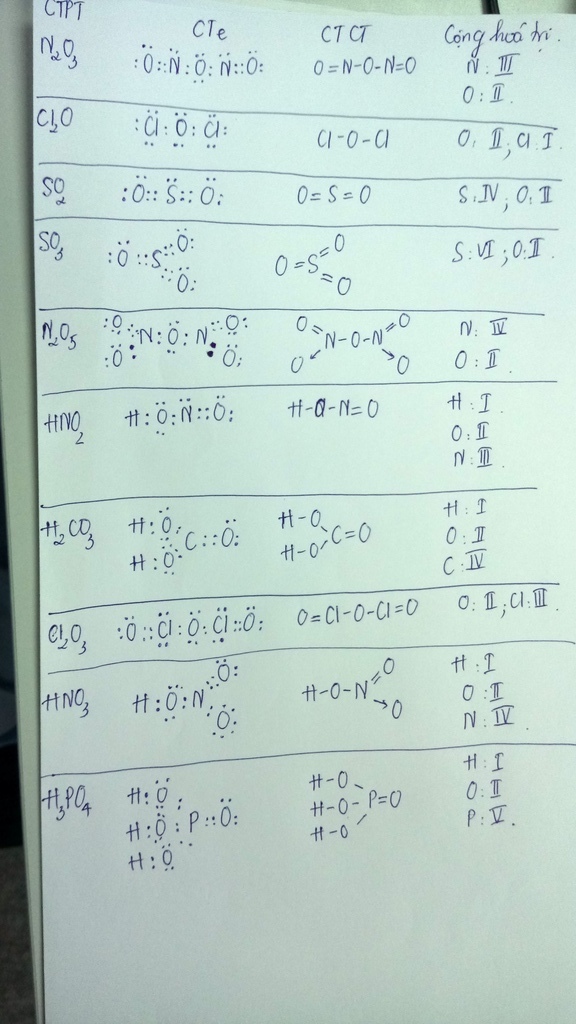 CTPT CTe CTCT Cộng hoá trị.
N2O3 :Ö::N̈:Ö:N̈::Ö: O=N-O-N=O N: III
O: II.
Cl2O :C̈l:Ö:C̈l: Cl-O-Cl O: II; Cl: I.
SO2 :Ö::S̈::Ö: O=S=O S: IV; O: II
SO3 :Ö::S::Ö: O=S=O S: VI; O: II.
:Ö: =O
N2O5 :Ö::N:Ö:N::Ö: O=N-O-N=O N: IV
:Ö: :Ö: O← →O O: II
HNO2 H:Ö:N̈::Ö: H-O-N=O H: I.
O: II
N: III.
H2CO3 H:Ö: H-O H: I
C::Ö: C=O O: II
H:Ö: H-O C: IV
Cl2O3 :Ö::C̈l:Ö:C̈l::Ö: O=Cl-O-Cl=O O: II; Cl: III.
HNO3 H:Ö:N::Ö: H-O-N=O H: I
:Ö: →O O: II
N: IV.
H3PO4 H:Ö: H-O H: I
H:Ö:P::Ö: H-O-P=O O: II
H:Ö H-O P: V.